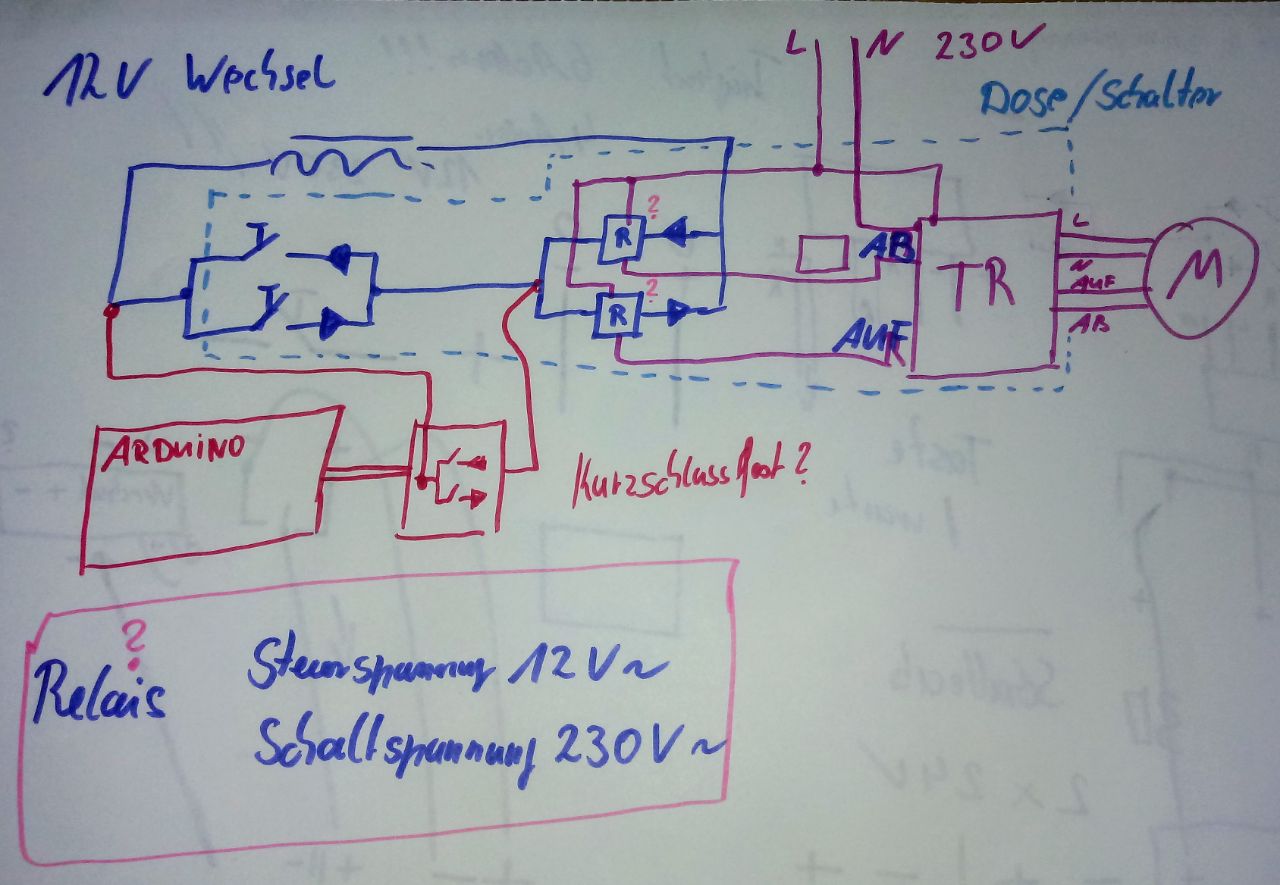 12V Wechsel
L N 230V
Dose/Schalter
?
R
AB
?
R
AUF
TR
L
N
AUF
AB
M
ARDUINO
Kurzschlussfest?
?
Relais
Steuerspannung 12V~
Schaltspannung 230V~